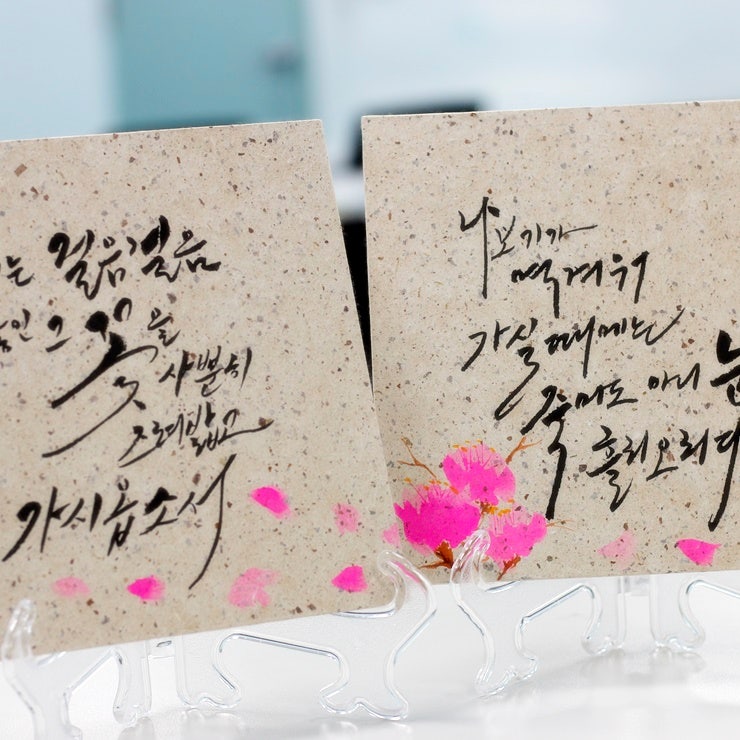 는 걸음걸음
인 그 꽃을
사뿐히
즈려밟고
가시옵소서
나 보기가
역겨워
가실 때에는
죽어도 아니
흘리오리다